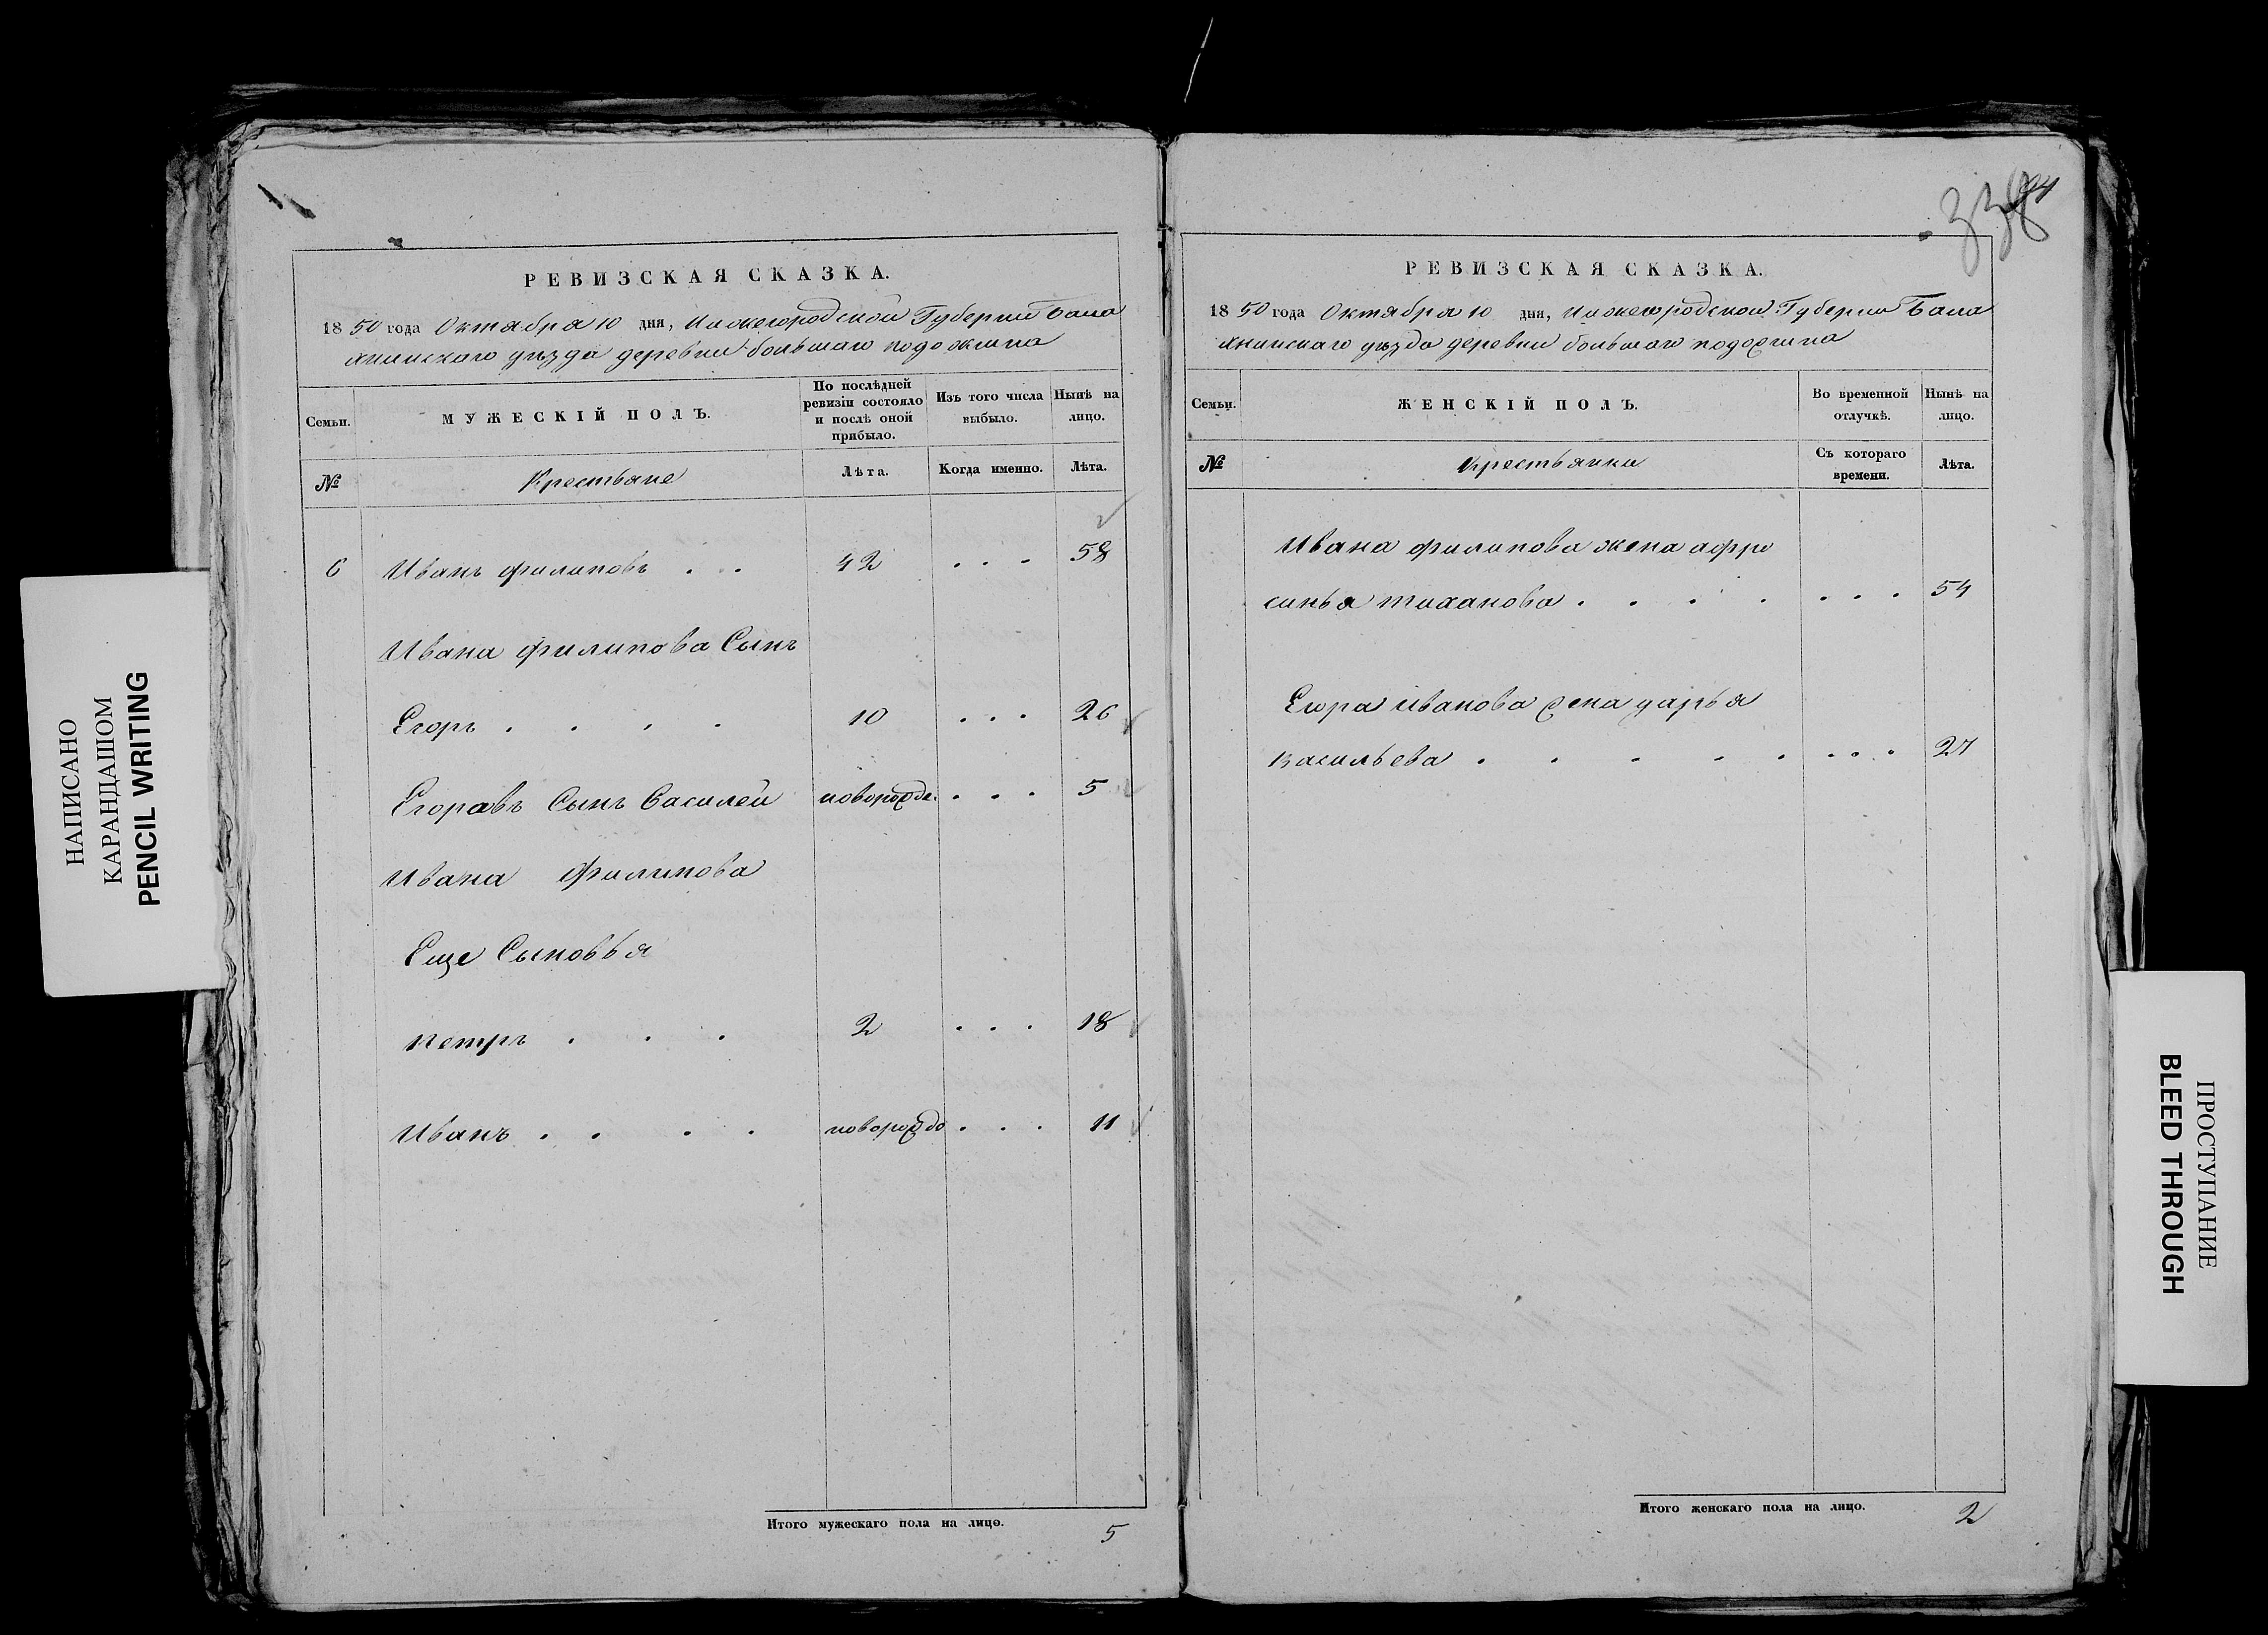 РЕВИЗСКАЯ СКАЗКА.
1850 года Октября 10 дня, Нижегородской Губернии Бала
хнинскаго уѣзда деревни большаго подожгина
Семьи.
МУЖЕСКІЙ ПОЛЪ.
По послѣдней ревизіи состояло и послѣ оной прибыло.
Изъ того числа выбыло.
Нынѣ на лицо.
№
Крестьяне
Лѣта.
Когда именно.
Лѣта.
6 Иванъ филиповъ . . 42 . . . 58
Ивана филипова Сынъ
Егоръ . . . . 10 . . . 26
Егоравъ Сынъ Василей новорожде. . . . 5
Ивана Филипова
Еще Сыновья
петръ . . . 2 . . . 18
Иванъ . . . . новорождо . . . 11
Итого мужескаго пола на лицо. 5
338
РЕВИЗСКАЯ СКАЗКА.
1850 года Октября 10 дня, Нижегородской Губернии Бала
хнинскаго уѣзда деревни большаго подожгина
Семьи.
ЖЕНСКІЙ ПОЛЪ.
Во временной отлучкѣ.
Нынѣ на лицо.
№
Крестьянки
Съ котораго времени.
Лѣта.
Ивана филипова жена афро
синья тиханова . . . . . . . 54
Егора иванова жена дарья
васильева . . . . . . . . 27
Итого женскаго пола на лицо. 2
НАПИСАНО
КАРАНДАШОМ
PENCIL WRITING
ПРОСТУПАНИЕ
BLEED THROUGH